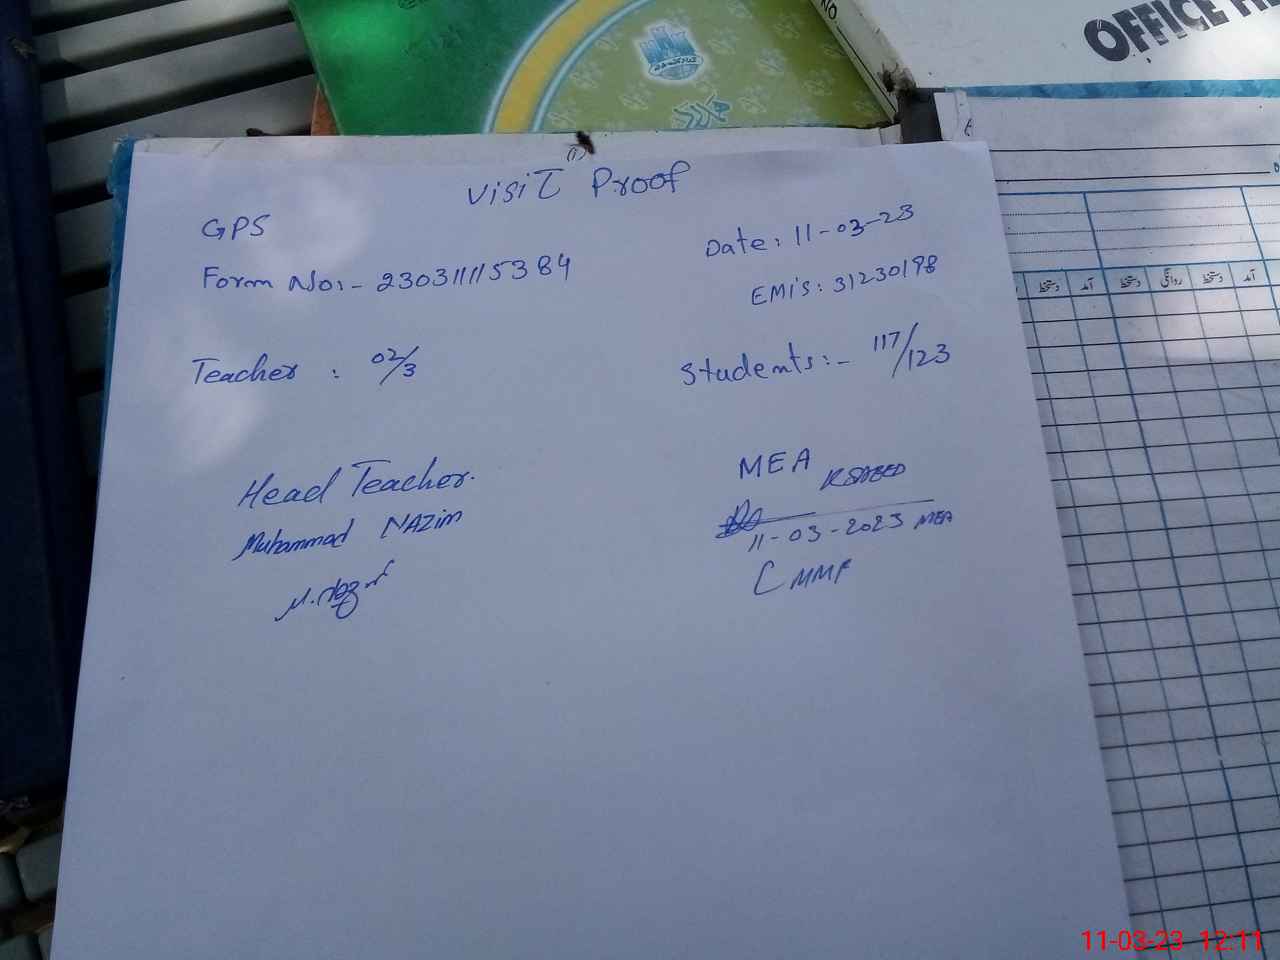 NO.
OFFICE
(1)
Visit Proof
GPS
Date: 11-03-23
Form No:- 230311115384
EMIS: 31230198
Teacher : 02/3
Students:- 117/123
Head Teacher.
MEA
Muhammad NAZim
11-03-2023 MEA
آمد دستخط روانگی دستخط آمد دستخط
11-03-23 12:11